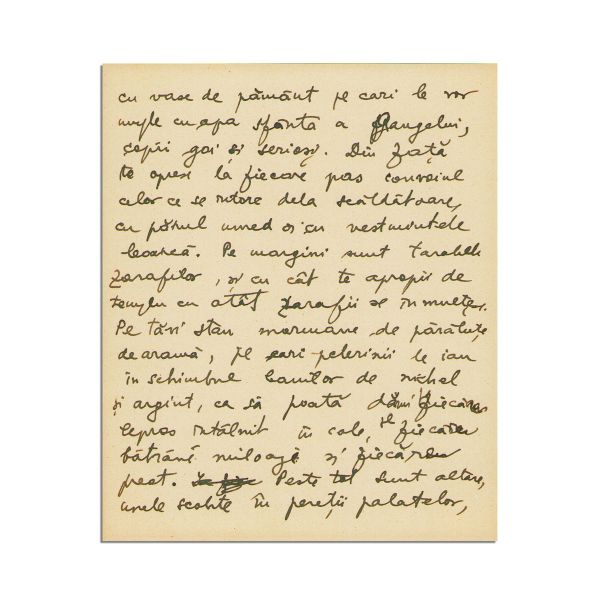 cu vase de pământ pe cari le vor
umple cu apa sfântă a Gangelui,
copii goi și serioși. Din față
te opresc la fiecare pas convoiul
celor ce se întorc dela scăldătoare,
cu părul umed și cu vestmintele
leoarcă. Pe margini sunt tarabele
zarafilor, și cu cât te apropii de
templu cu atât zarafii se înmulțesc.
Pe tăvi stau mormane de părăluțe
de aramă, pe cari pelerinii le iau
în schimbul banilor de nichel
și argint, ca să poată dărui fiecărui
lepros întâlnit în cale, fiecărei
bătrâne miloage și fiecărui
preot. Peste tot sunt altare,
unele scobite în pereții palatelor,